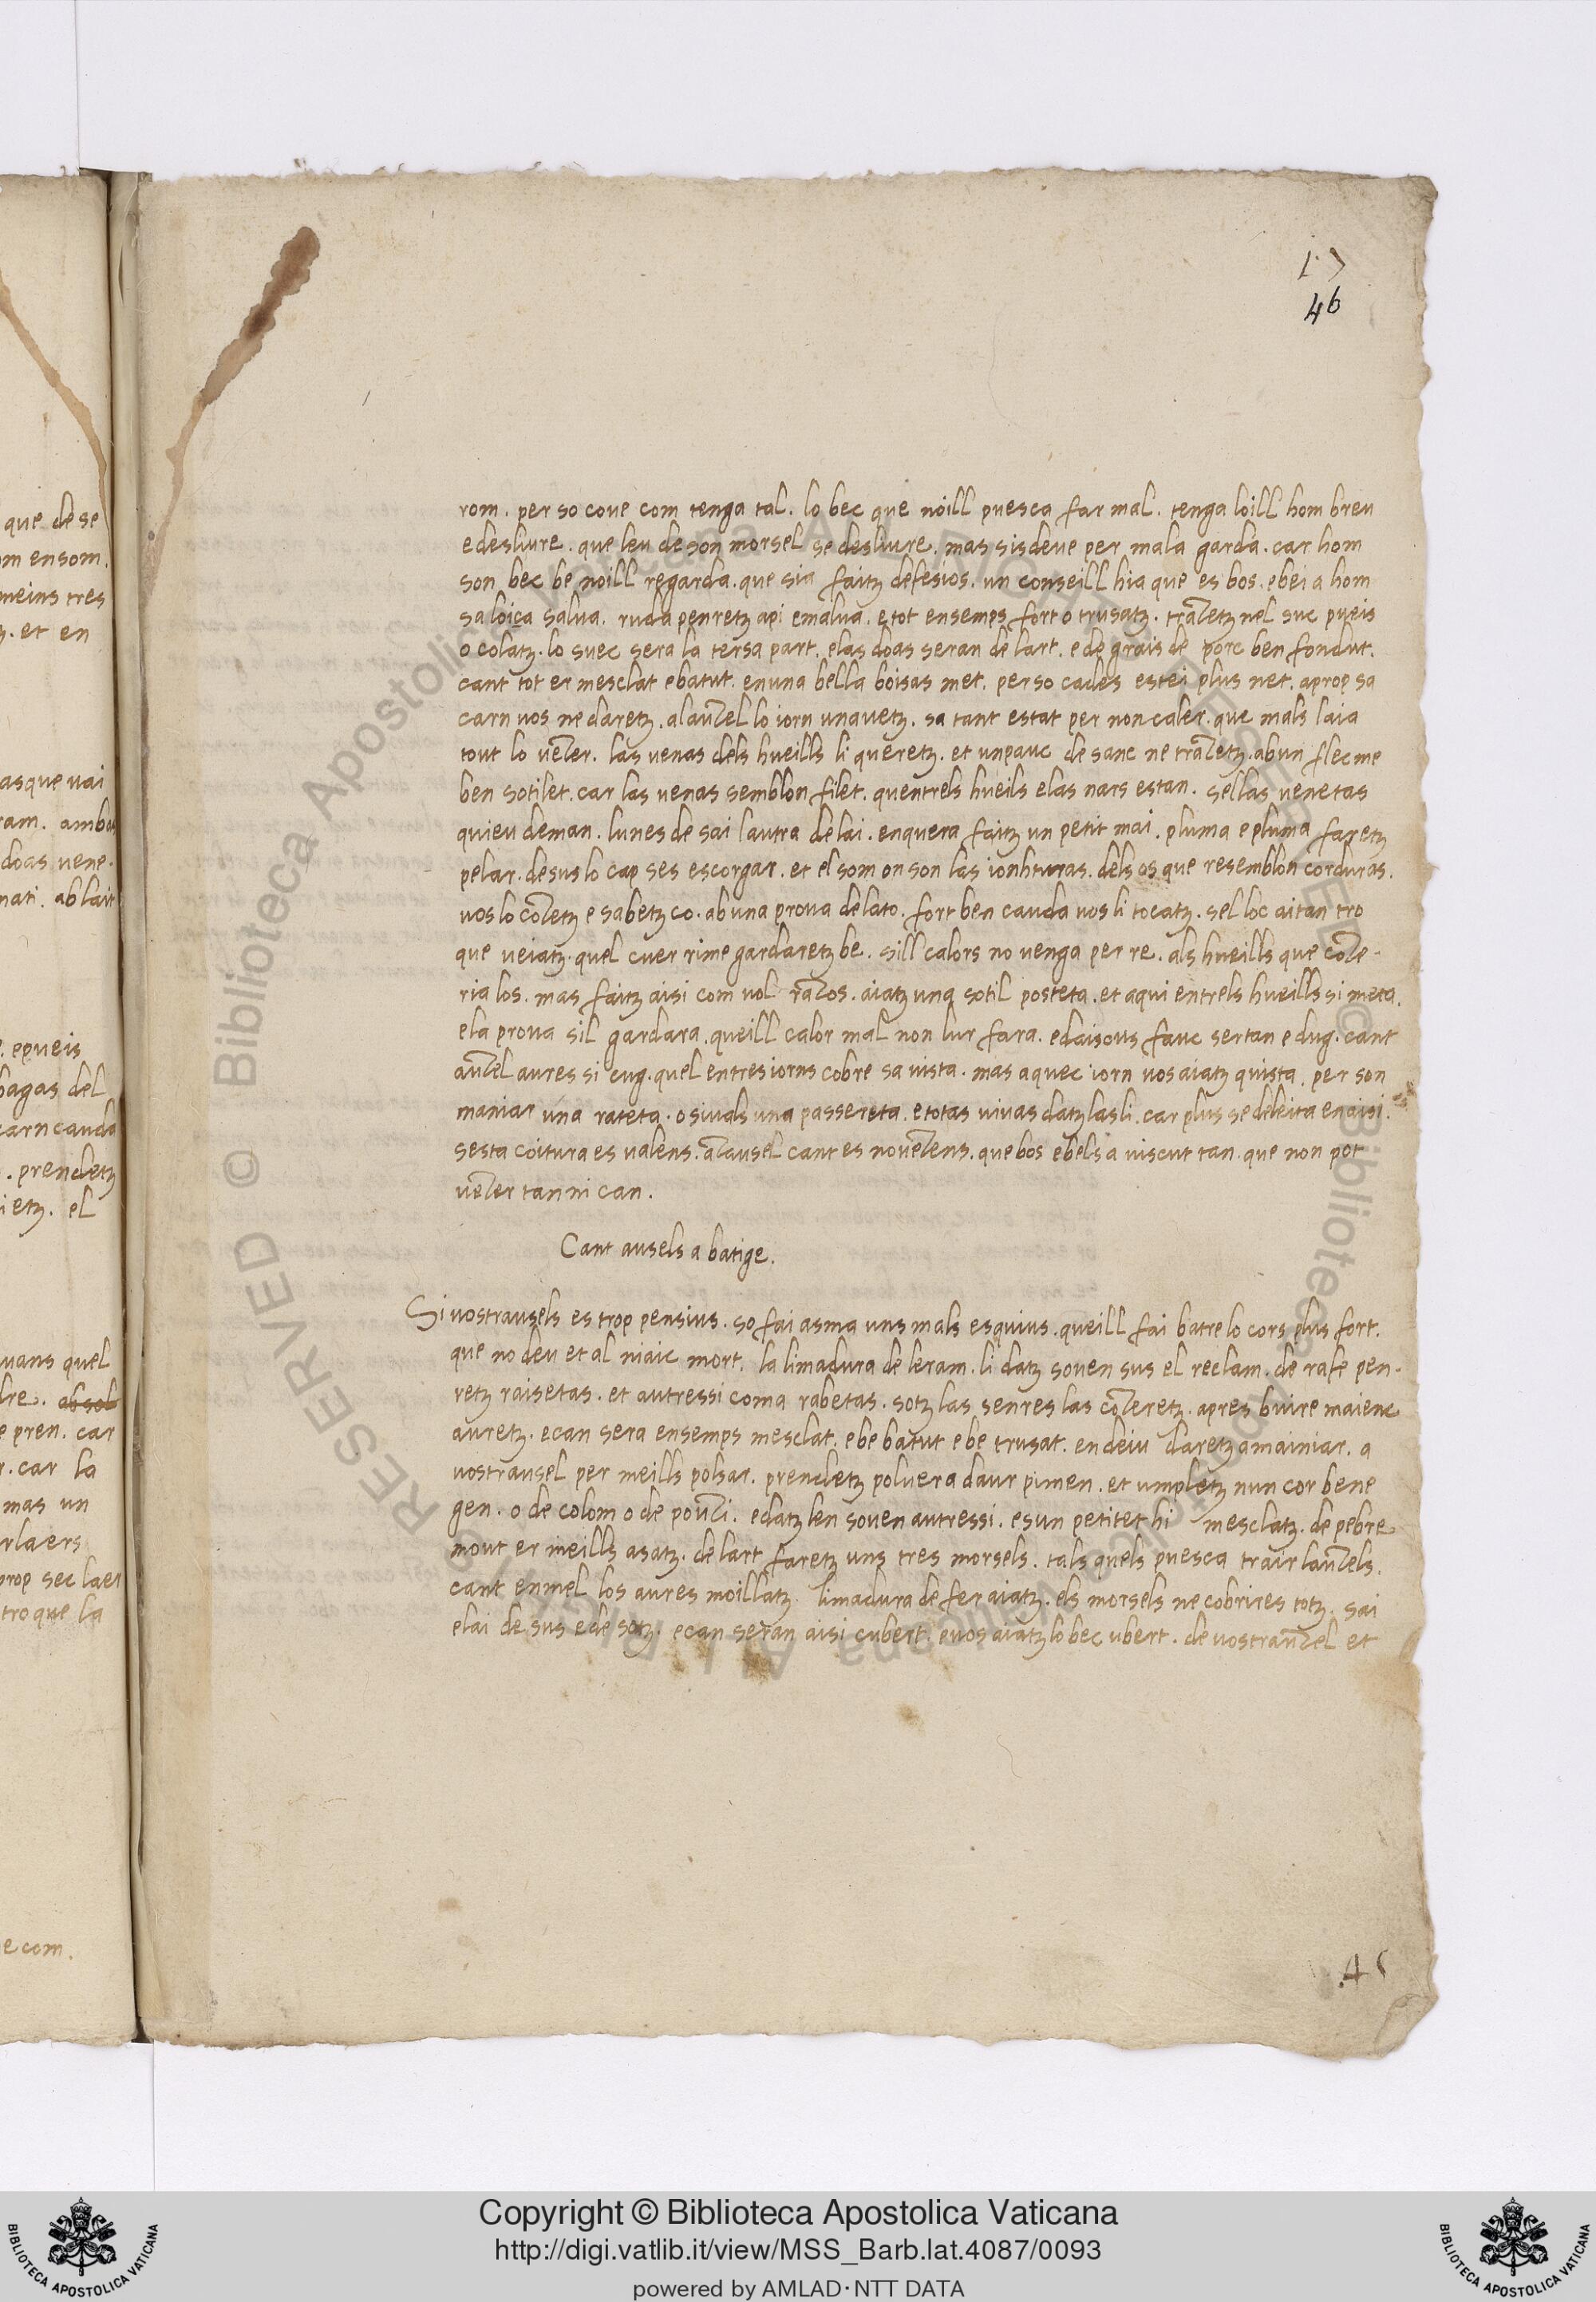 17
46
rom. per so coue com tenga tal. lo bec que noill puesca far mal. tenga loill hom breu
e desliure. que leu de son morsel se desliure. mas sisdeue per mala garda. car hom
son bec be noill regarda. que sia faitz defesios. un conseill hia que es bos. ebei a hom
sa loica salua. ruda penretz api emalua. e tot ensemps fort o trusatz. traZetz nel suc pueis
o colatz. lo suec sera la tersa part. elas doas seran de lart. e de grais de porc ben fondut.
cant tot er mesclat ebatut. en una bella boisas met. per so cades estei plus net. aprop sa
carn uos ne daretz. alauZel lo iorn una uetz. sa tant estat per non caler. que mals laia
tout lo ueZer. las uenas dels hueills li queretz. et un pauc de sanc ne traZetz. ab un flecme
ben sotilet. car las uenas semblon filet. quentrels hueils elas nars estan. sellas uenetas
quieu deman. lunes de sai lautra de lai. enquera faitz un petit mai. pluma e pluma faretz
pelar. desus lo cap ses escorgar. et el som on son las ionhturas. dels os que resemblon corduras.
uos lo coZetz e sabetz co. ab una proua de lato. fort ben cauda uos li tocatz. sel loc aitan tro
que ueiatz. quel cuer rime gardaretz be. sill calors no uenga per re. als hueills que coZe-
ria los. mas faitz aisi com uol raZos. aiatz una sotil posteta. et aqui entrels hueills si meta.
ela proua sil gardara. queill calor mal non lur fara. edaisous fauc sertan e dug. cant
auZel aures si cug. quel entres iorns cobre sa uista. mas aquec iorn uos aiatz quista. per son
maniar una rateta. o siuals una passereta. e totas uiuas datz las li. car plus se deleita enaisi.
sesta coitura es ualens. aZausel cant es noueZens. que bos ebels a uiscut tan. que non pot
ueZer tan ni can.
Cant ausels a batige.
Si uostrausels es trop pensius. so fai asma uns mals esquius. queill fai batre lo cors plus fort.
que no deu et al niaic mort. la limadura de leram. li datz souen sus el reclam. de rafe pen-
retz raisetas. et autressi coma rabetas. sotz las senres las coZeretz. apres buire maienc
auretz. e can sera ensemps mesclat. e be batut e be trusat. en deiu daretz a mainiar. a
uostrausel per meills polsar. prendetz poluera daur pimen. et umpletz nun cor bene
gen. o de colom o de pouZi. e datz len souen autressi. es un petitet hi mesclatz. de pebre
mout er meills asatz. de lart faretz uns tres morsels. tals quels puesca trair lauZels.
cant en mel los aures moillatz. limadura de fer aiatz. els morsels ne cobrires totz. sai
elai de sus e de sotz. e can seran aisi cubert. e uos aiatz lo bec ubert. de uostrauZel et
que de se
om ensom.
meins tres
et en
asque uai
ram. ambas
doas uene.
nati. ab lait
epueis
bagas del
carn cauda
prendetz
ietz. el
uans quel
dre. ab sol
e pren. car
r. car la
mas un
rlaers
prop sec laer
tro que la
e com.
Biblioteca Apostolica Vaticana ALL RIGHTS RESERVED © Biblioteca Apostolica Vaticana ALL RIGHTS RESERVED ©
Copyright © Biblioteca Apostolica Vaticana
http://digi.vatlib.it/view/MSS_Barb.lat.4087/0093
powered by AMLAD·NTT DATA
BIBLIOTECA APOSTOLICA VATICANA
BIBLIOTECA APOSTOLICA VATICANA